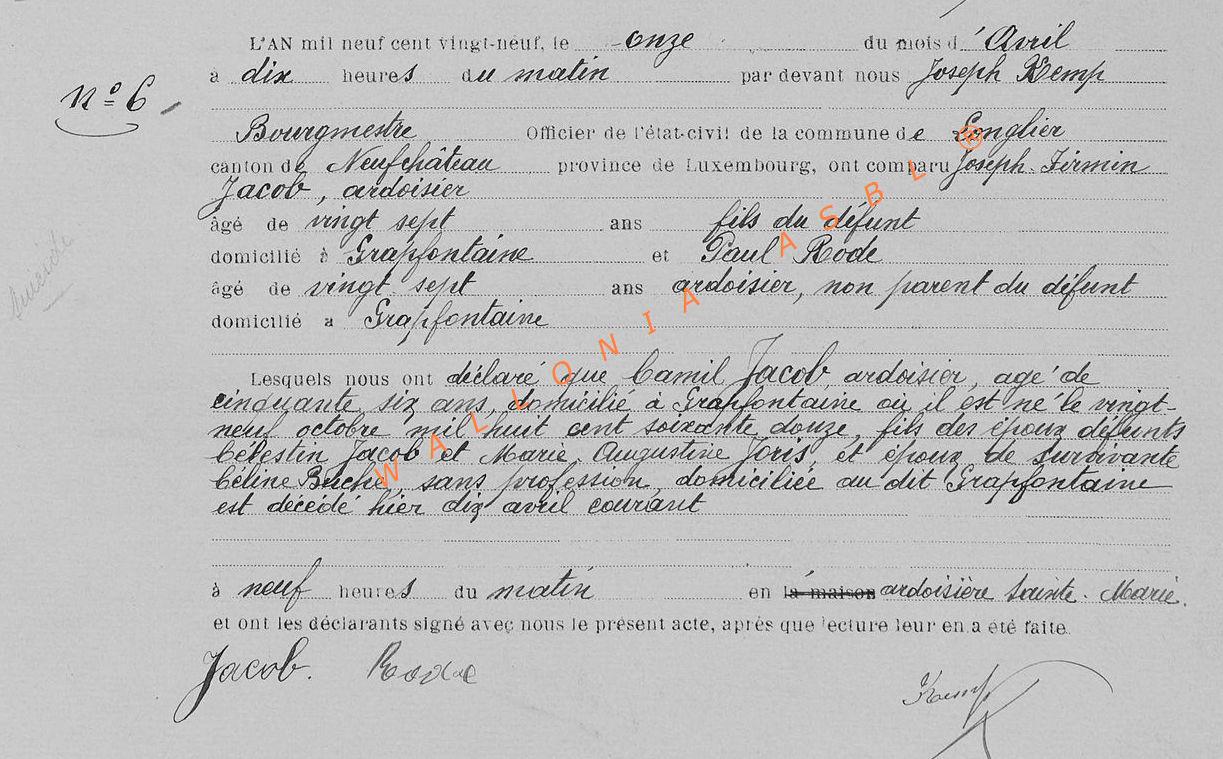 L'AN mil neuf cent vingt-neuf, le onze du mois d'Avril
à dix heures du matin par devant nous Joseph Kemp
nº 6
Bourgmestre Officier de l'état-civil de la commune de Longlier
canton de Neufchâteau province de Luxembourg, ont comparu Joseph Firmin
Jacob, ardoisier
âgé de vingt sept ans fils du défunt
domicilié à Grapfontaine et Paul Rode
âgé de vingt sept ans ardoisier, non parent du défunt
suicide
domicilié a Grapfontaine
Lesquels nous ont déclaré que Camil Jacob, ardoisier, agé de
cinquante six ans, domicilié à Grapfontaine où il est né le vingt-
neuf octobre mil huit cent soixante douze, fils des époux défunts
Célestin Jacob et Marie Augustine Joris, et époux de survivante
Céline Buche, sans profession, domiciliée au dit Grapfontaine
est décédé hier dix avril courant
à neuf heures du matin en la maison ardoisière Sainte-Marie.
et ont les déclarants signé avec nous le présent acte, après que lecture leur en a été faite.
Jacob. Rode Kemp
WALLONIA ASBL ®